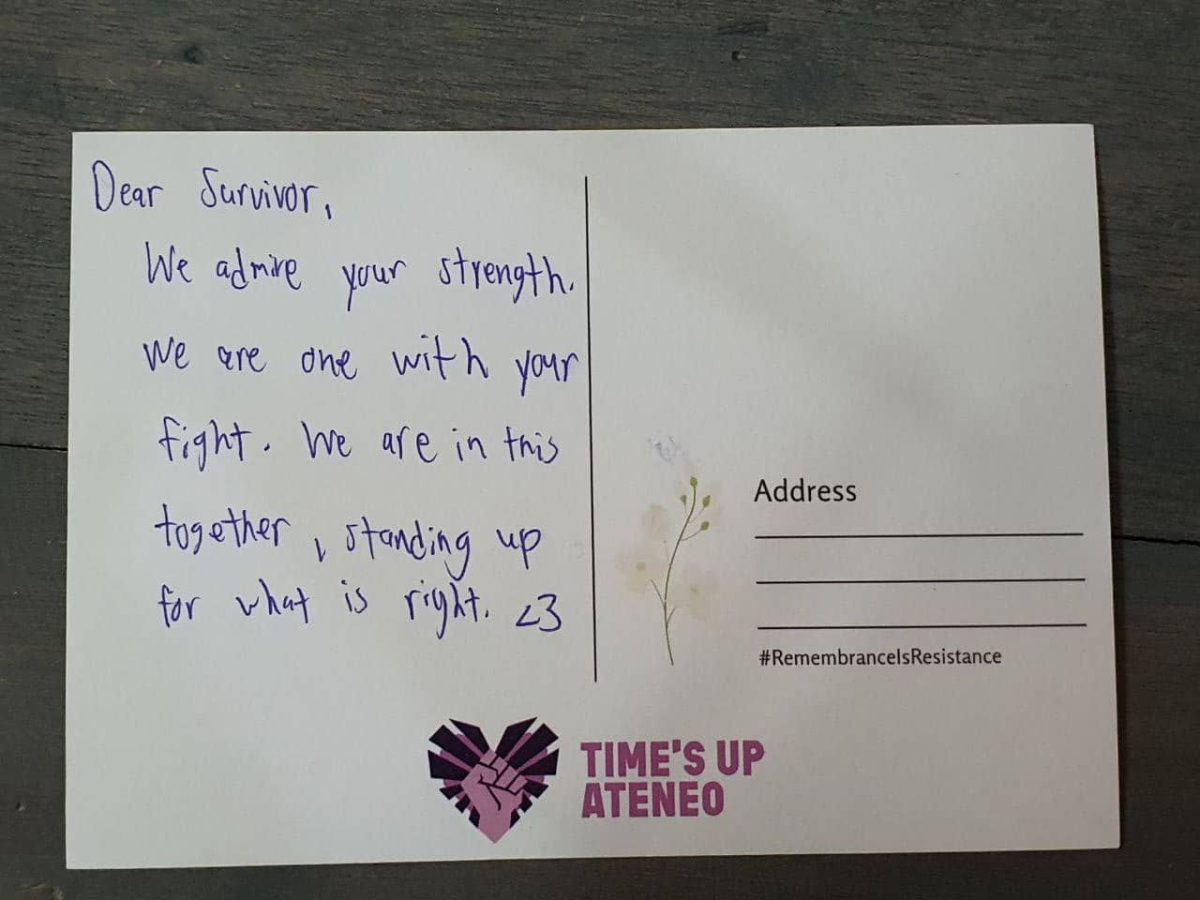 Dear Survivor,
We admire your strength.
We are one with your
fight. We are in this
together, standing up
for what is right. <3
Address
#RemembranceIsResistance
TIME'S UP
ATENEO